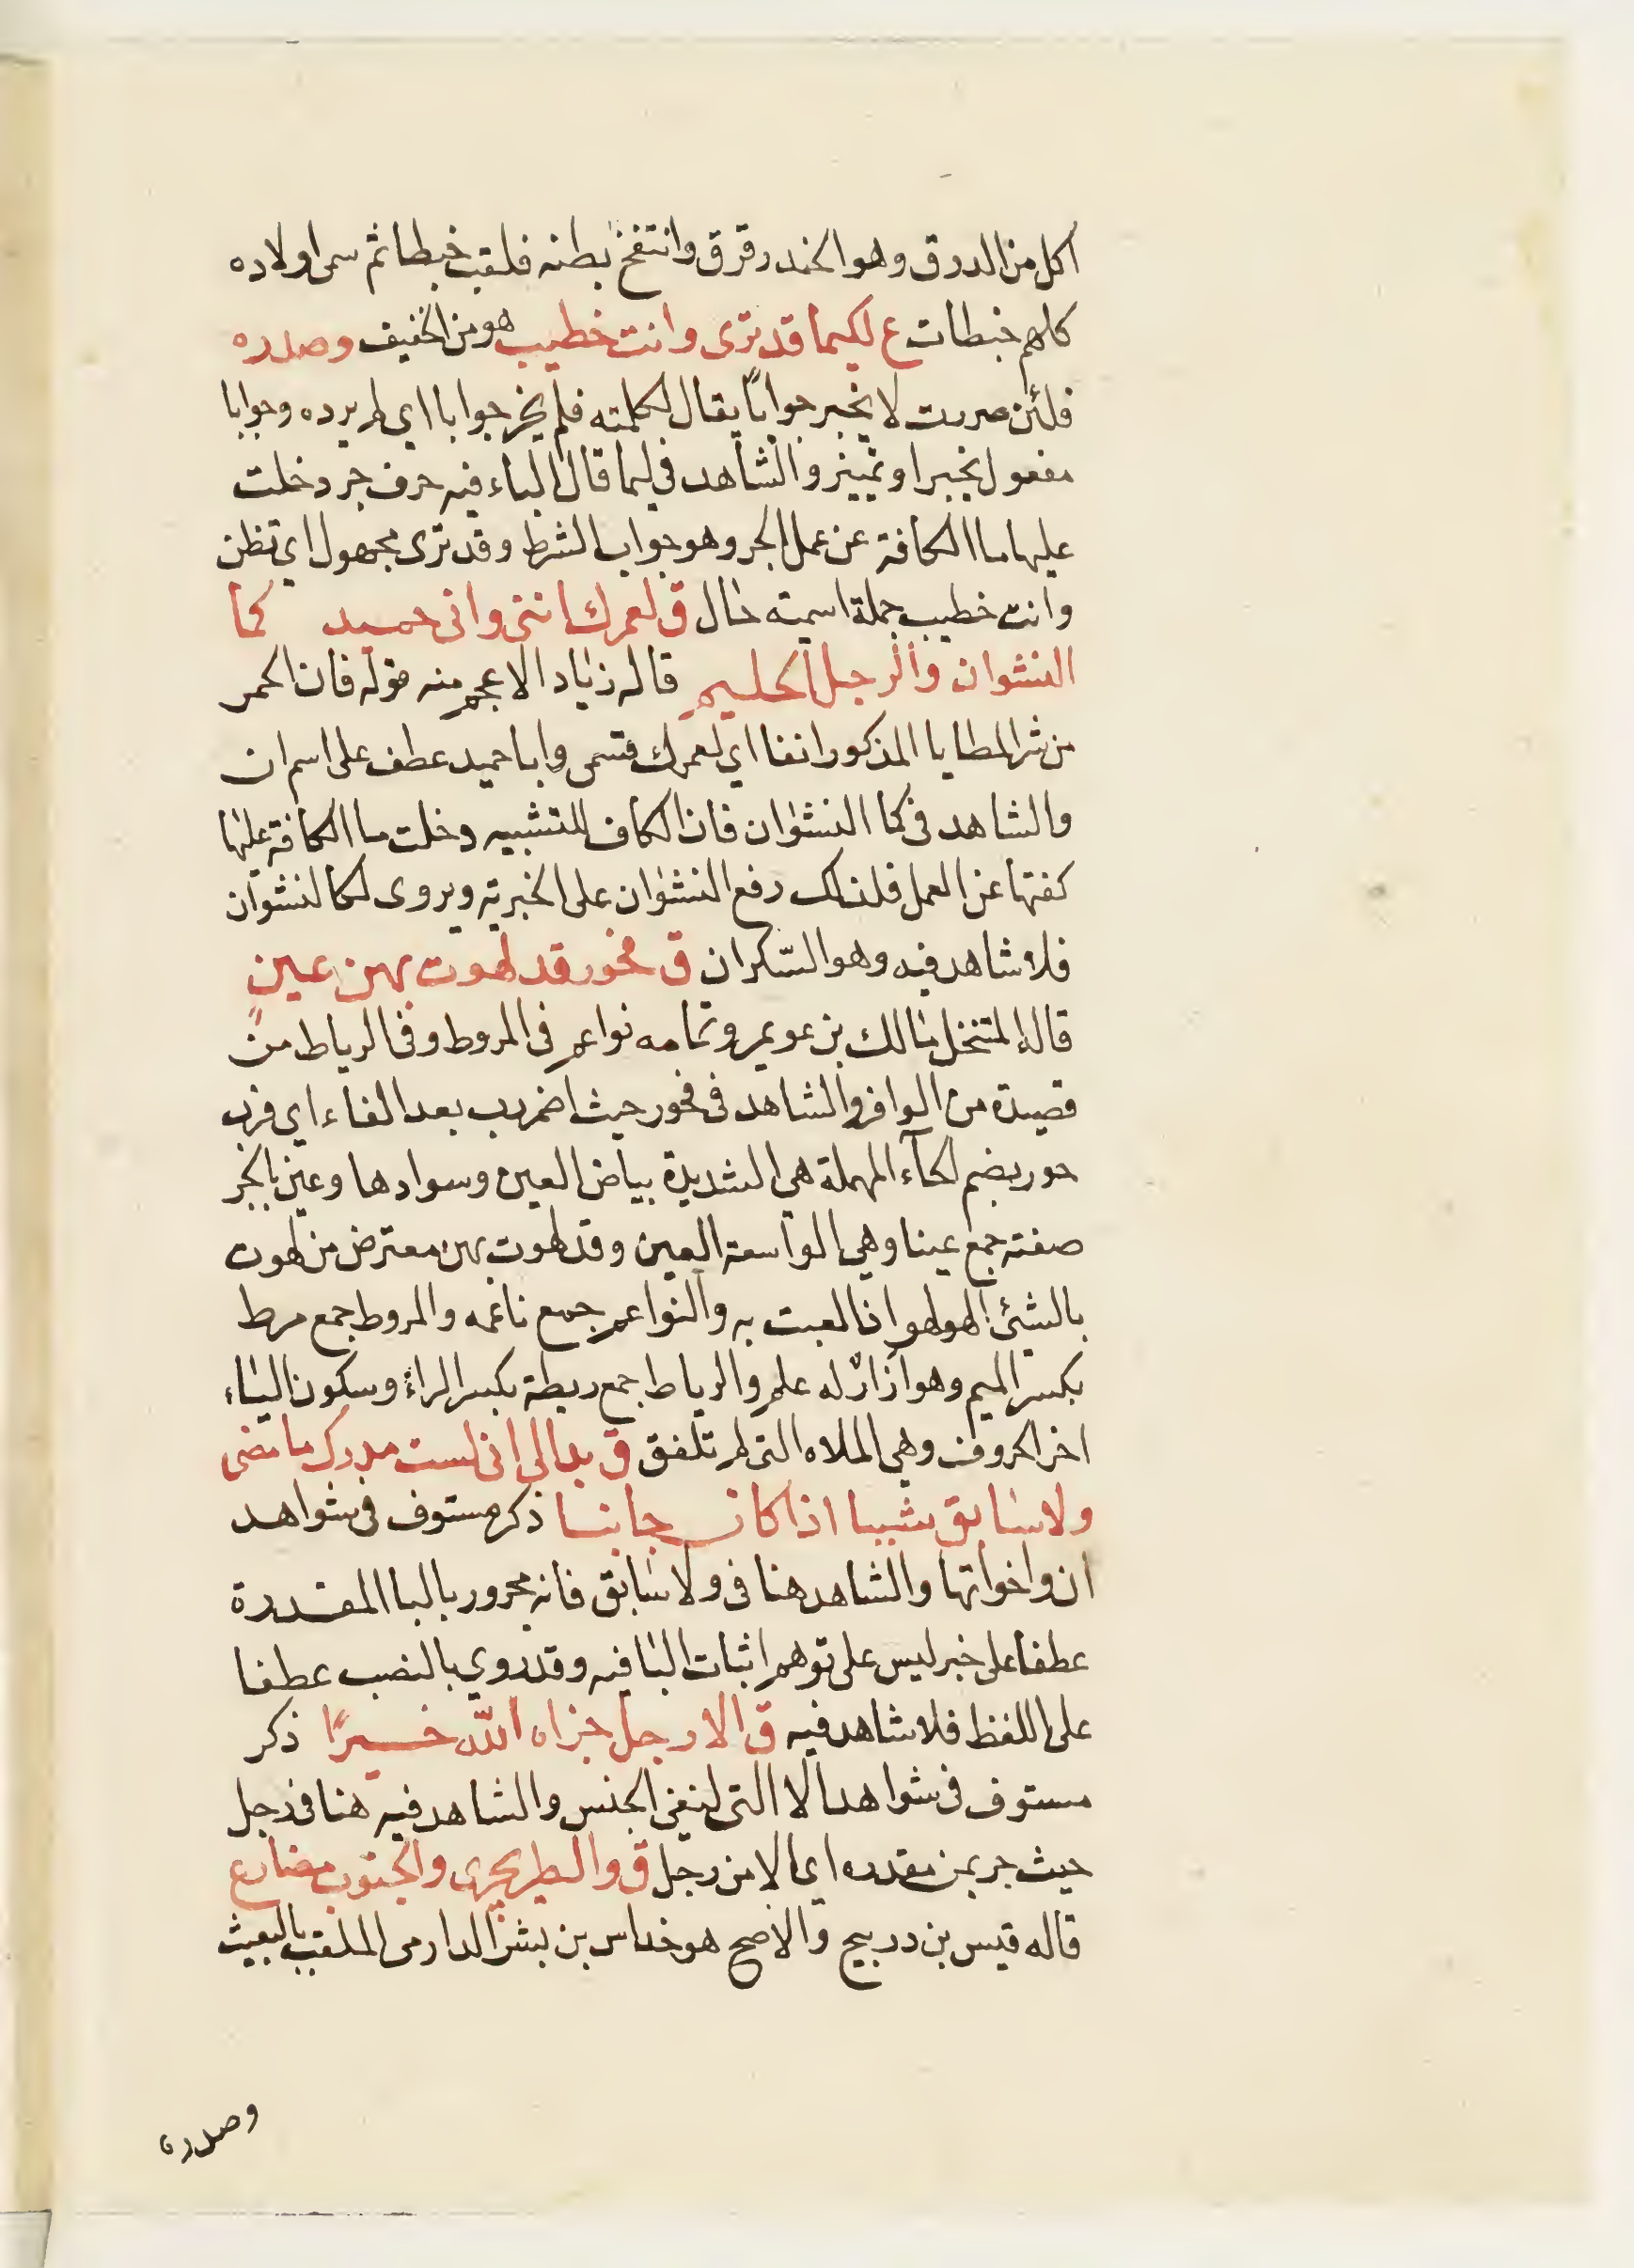 اكل من الدرق وهو الحندرقرق وانتفخ بطنه فلقب خبطا ثم سمى اولاده
كلهم خبطات ع لكيما قد ترى وانت خطيب هو من الخفيف وصدره
فلئن صرت لا تحير جوابا يقال كلمته فلم يحر جوابا اى لم يرده وجوابا
مفعول تحير او تمييز والشاهد فى لما قال الباء فيه حرف جر دخلت
عليها ما الكافة عن عمل الجر وهو جواب الشرط وقد ترى مجهول اى تظن
وانت خطيب جملة اسمية حال ق لعمرك اننى وانى حميد كما
النشوان والرجل الحليم قاله زياد الاعجم منه قوله فان الحمر
من شر المطايا المذكور انفا اى لعمرك قسمى وابا حميد عطف على اسم ان
والشاهد فى كما النشوان فان الكاف للتشبيه دخلت ما الكافة عليها
كفتها عن العمل فلذلك رفع النشوان على الخبرية ويروى لكالنشوان
فلا شاهد فيه وهو السكران ق فحور قد لهوت بهن عين
قاله المتنخل مالك بن عويمر وتمامه نواعم فى المروط وفى الرياط من
قصيدة من الوافر والشاهد فى فحور حيث اضمر رب بعد الفاء اى فرب
حور بضم الحآء المهملة هى الشديدة بياض العين وسوادها وعين بالجر
صفته جمع عينا وهى الواسعة العين وقد لهوت بهن معترض من لهوت
بالشئ الهو لهوا اذا لعبت به والنواعم جمع ناعمه والمروط جمع مرط
بكسر الميم وهو ازار له علم والرياط جمع ريطة بكسر الراء وسكون الياء
اخر الحروف وهى الملاه التى لم تلفق ق بدا لى انى لست مدرك ما مضى
ولا سابق شيبا اذا كان جانيا ذكر مستوف فى شواهد
ان واخواتها والشاهد هنا فى ولا سابق فانه مجرور بالبا المقدرة
عطفا على خبر ليس على توهم اثبات البا فيه وقد روي بالنصب عطفا
على اللفظ فلا شاهد فيه ق الا رجل جزاه الله خيرًا ذكر
مستوف فى شواهد الا التى لنفى الجنس والشاهد فيه هنا فى رجل
حيث جر بمن مقدره اى الا من رجل ق والطير يجرى والجنوب مضارع
قاله قيس بن دربيح والاصح هو خداس بن بشر الدارمى الملقب بالبعيث
وصدره